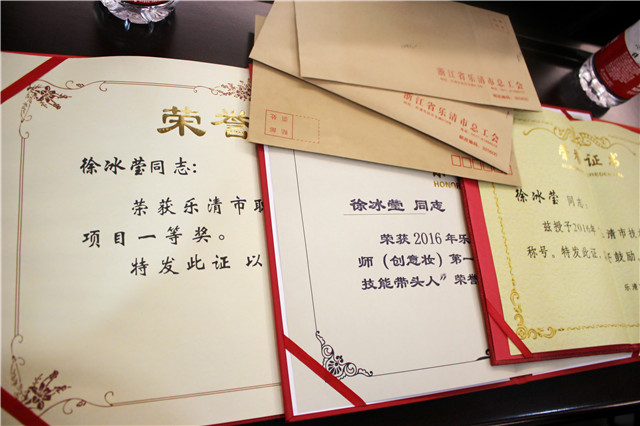 荣誉
徐冰莹同志:
荣获乐清市职
项目一等奖。
特发此证 以
浙江省乐清市总工会
浙江省乐清市总工会
HONOR
徐冰莹 同志
荣获2016年乐
师（创意妆）第一
技能带头人 荣誉
证书
徐冰莹 同志:
兹授予2016年 清市技
称号。特发此证, 鼓励。
乐清